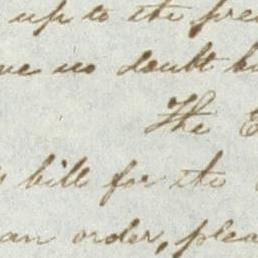 up to the pre
ve no doubt bu
The
bill for the
an order, plea